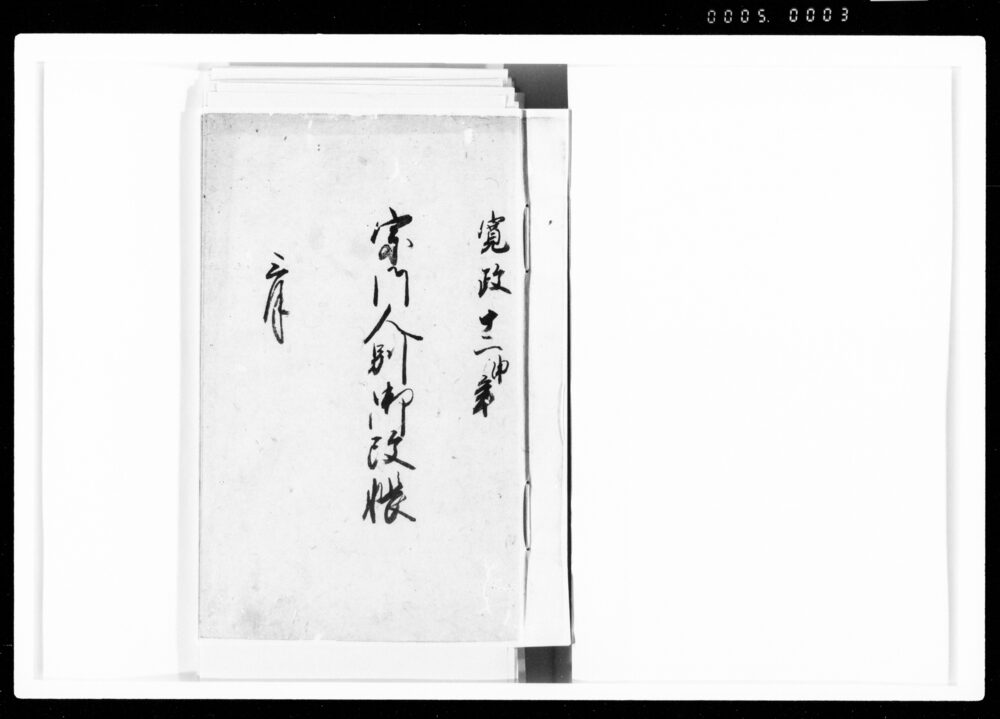 0005. 0003
寛政十二申年
宗門人別御改帳
三月